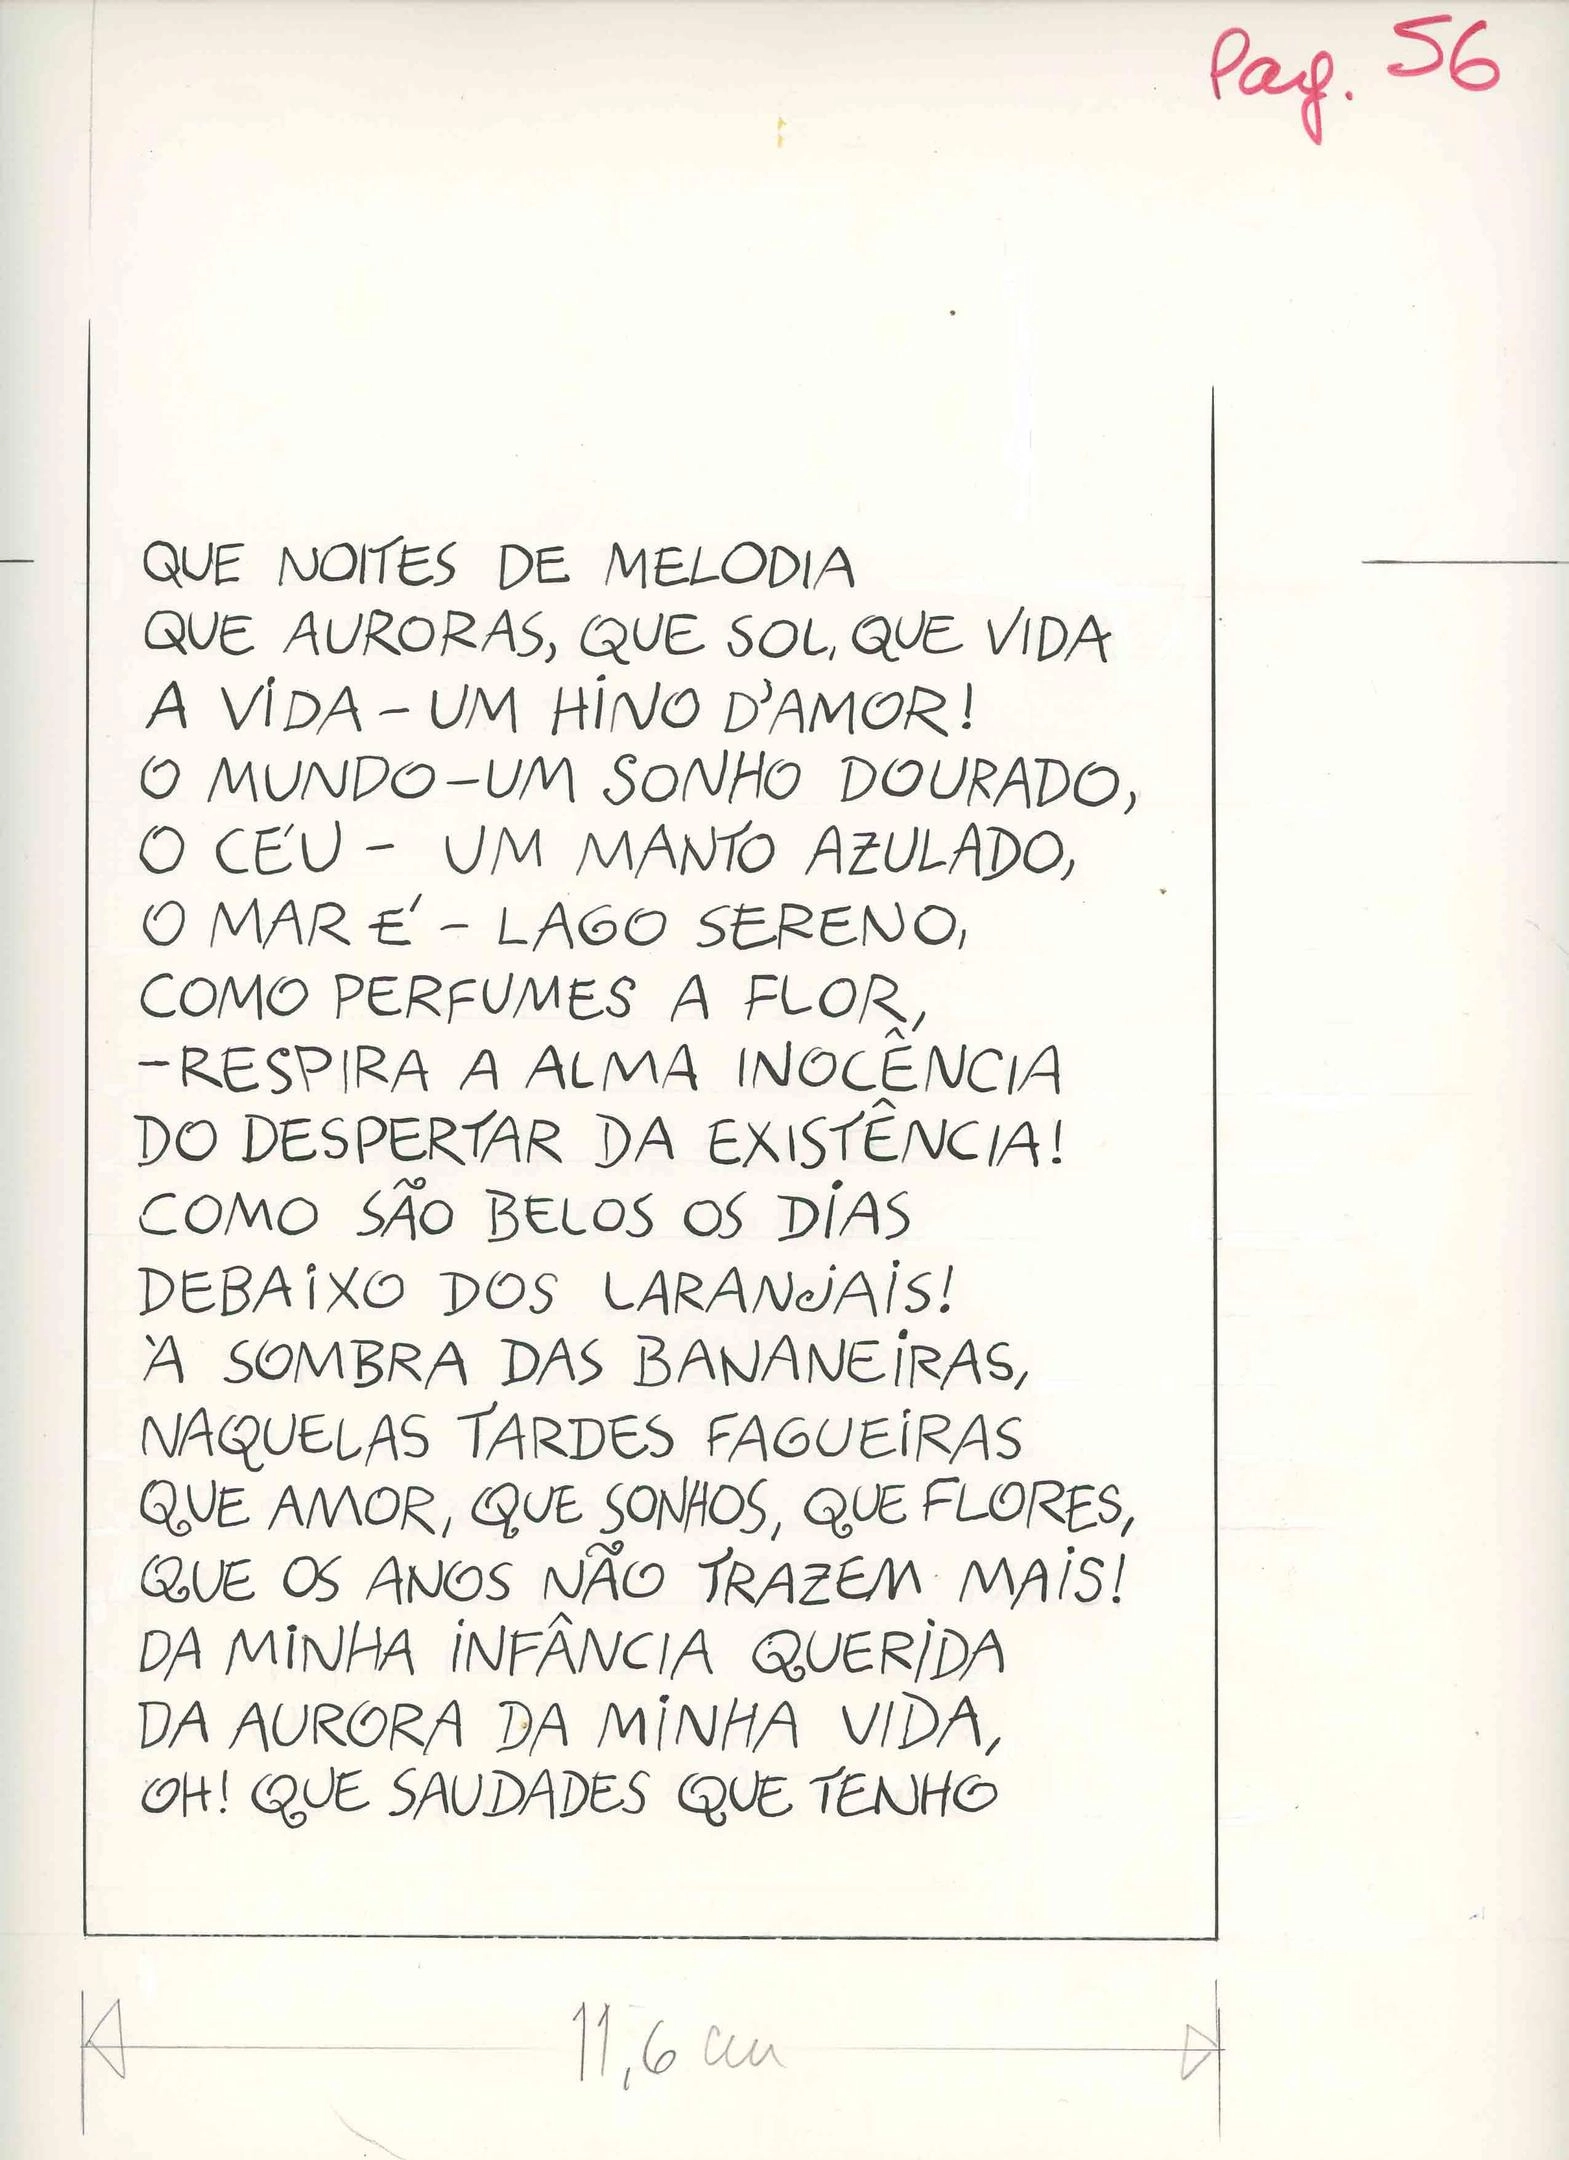 Pag. 56
QUE NOITES DE MELODIA
QUE AURORAS, QUE SOL, QUE VIDA
A VIDA - UM HINO D'AMOR!
O MUNDO - UM SONHO DOURADO,
O CÉU - UM MANTO AZULADO,
O MAR É - LAGO SERENO,
COMO PERFUMES A FLOR,
- RESPIRA A ALMA INOCÊNCIA
DO DESPERTAR DA EXISTÊNCIA!
COMO SÃO BELOS OS DIAS
DEBAIXO DOS LARANJAIS!
À SOMBRA DAS BANANEIRAS,
NAQUELAS TARDES FAGUEIRAS
QUE AMOR, QUE SONHOS, QUE FLORES,
QUE OS ANOS NÃO TRAZEM MAIS!
DA MINHA INFÂNCIA QUERIDA
DA AURORA DA MINHA VIDA,
OH! QUE SAUDADES QUE TENHO
11,6 cm